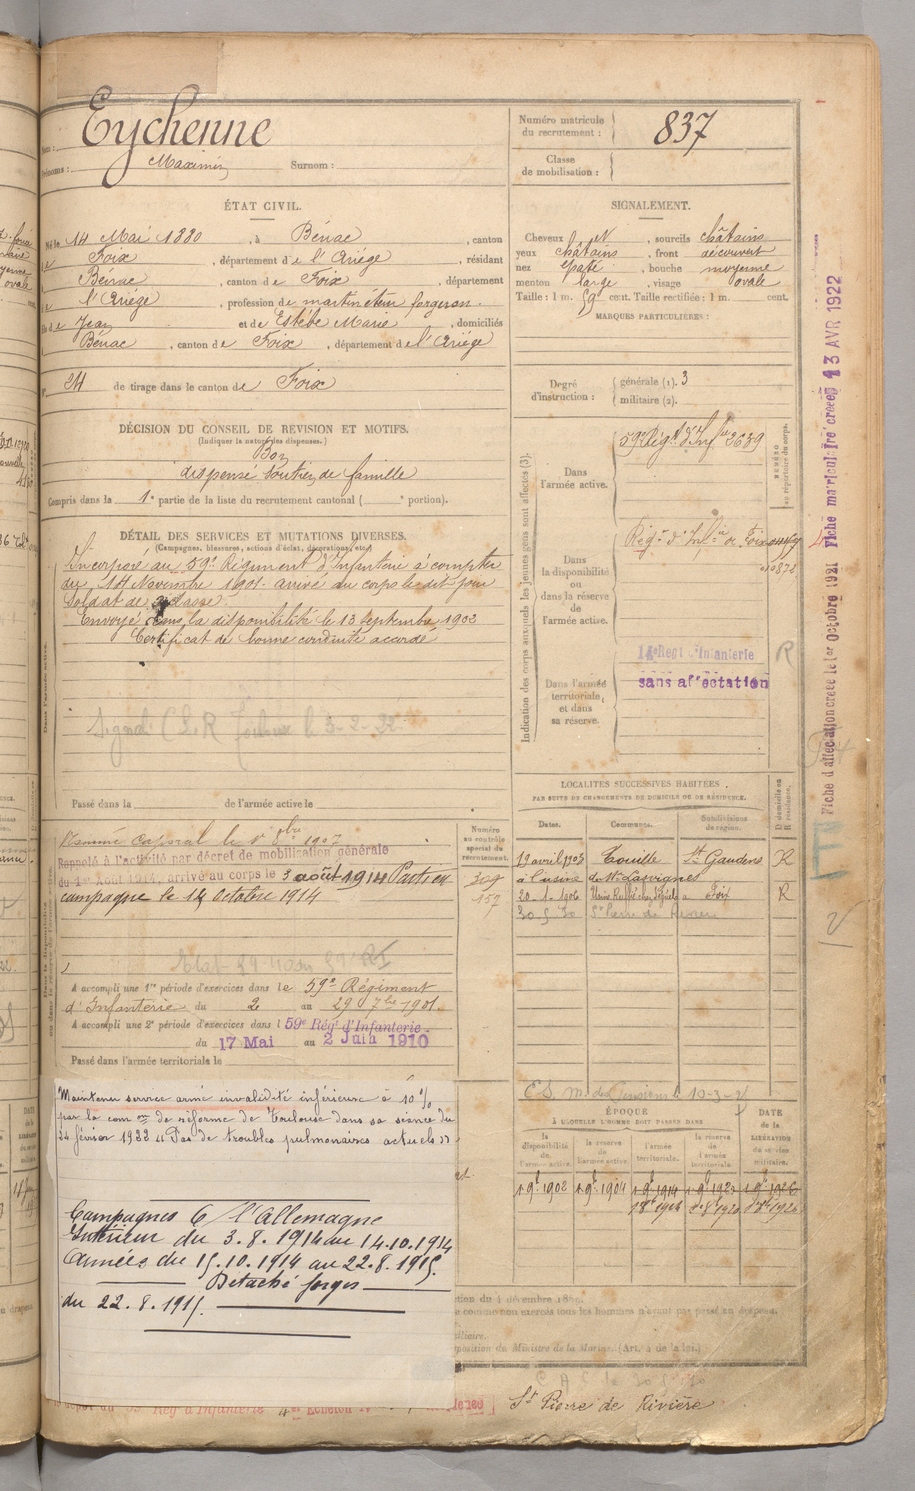 Eychenne
Maximin Surnom :
ÉTAT CIVIL.
Né le 14 Mai 1880 , à Bénac , canton
Foix , département de l'Ariège , résidant
Bénac , canton de Foix , département
l'Ariège , profession de martinéteur forgeron.
de Jean et de Estèbe Marie , domiciliés
Bénac , canton de Foix , département de l'Ariège
24 de tirage dans le canton de Foix
DÉCISION DU CONSEIL DE REVISION ET MOTIFS.
(Indiquer la nature des dispenses.)
Bon
dispensé soutien de famille
Compris dans la 1e partie de la liste du recrutement cantonal ( e portion).
DÉTAIL DES SERVICES ET MUTATIONS DIVERSES.
(Campagnes, blessures, actions d'éclat, décorations, etc.)
Incorporé au 59e Régiment d'Infanterie à compter
du 14 Novembre 1901 arrivé au corps le dit jour
Soldat de 2e classe.
Envoyé dans la disponibilité le 13 septembre 1902
Certificat de bonne conduite accordé
Signal. C S R Toulouse 3-2-
Passé dans la de l'armée active le
Nommé Caporal le 1907
Rappelé à l'activité par décret de mobilisation générale
du 1er Août 1914, arrivé au corps le 3 août 1914 Parti en
campagne le 14 octobre 1914
A accompli une 1re période d'exercices dans le 59e Régiment
d'Infanterie du 2 au 29 7bre
A accompli une 2e période d'exercices dans l 59e Régt d'Infanterie
du 17 Mai au 2 Juin 1910
Passé dans l'armée territoriale le
Maintenu service armé invalidité inférieure à 10%
par la com on de réforme de Toulouse dans sa séance du
24 février 1922 "Pas de troubles pulmonaires actuels"
Campagnes C l'Allemagne
Intérieur du 3.8.1914 au 14.10.1914
Armées du 15.10.1914 au 22.8.1915.
Détaché forges
du 22.8.1915.
Régt d'Infanterie
Numéro matricule
du recrutement : 837
Classe
de mobilisation :
SIGNALEMENT.
Cheveux , sourcils châtains
yeux châtains , front découvert
nez épaté , bouche moyenne
menton large , visage ovale
Taille : 1 m. 59 cent. Taille rectifiée : 1 m. cent.
MARQUES PARTICULIÈRES :
Degré
d'instruction : générale (1). 3
militaire (2).
Indication des corps auxquels les jeunes gens sont affectés (3).
NUMÉRO
au répertoire du corps.
Dans
l'armée active.
59e Régt d'Infie 3639
Dans
la disponibilité
ou
dans la réserve
de
l'armée active.
Régt d'Infie de Foix
Dans l'armée
territoriale
et dans
sa réserve.
14e Régt d'Infanterie
R
sans affectation
LOCALITÉS SUCCESSIVES HABITÉES
PAR SUITE DE CHANGEMENTS DE DOMICILE OU DE RÉSIDENCE.
D domicile ou
R résidence.
Numéro
au contrôle
spécial du
recrutement.
309
157
Dates. Communes. Subdivisions
de région.
19 avril 1903 Touille St Gaudens R
à l'usine de Mr Lasvignes
20-1-1906 Foix R
30 5 30 St Pierre de Rivière
ÉPOQUE
À LAQUELLE L'HOMME DOIT PASSER DANS
DATE
de la
LIBÉRATION
du service
militaire.
la
disponibilité
de
l'armée active.
la réserve
de
l'armée active.
l'armée
territoriale.
la réserve
de
l'armée
territoriale.
1 9bre 1902 1 9bre 1904 1 9bre 1914
du 4 décembre 1889
position du Ministre de la Marine. (Art. 4 de la loi.)
St Pierre de Rivière
Fiche d'affectation créée le 1er Octobre 1921 Fiche matriculaire créée le 13 AVR 1922